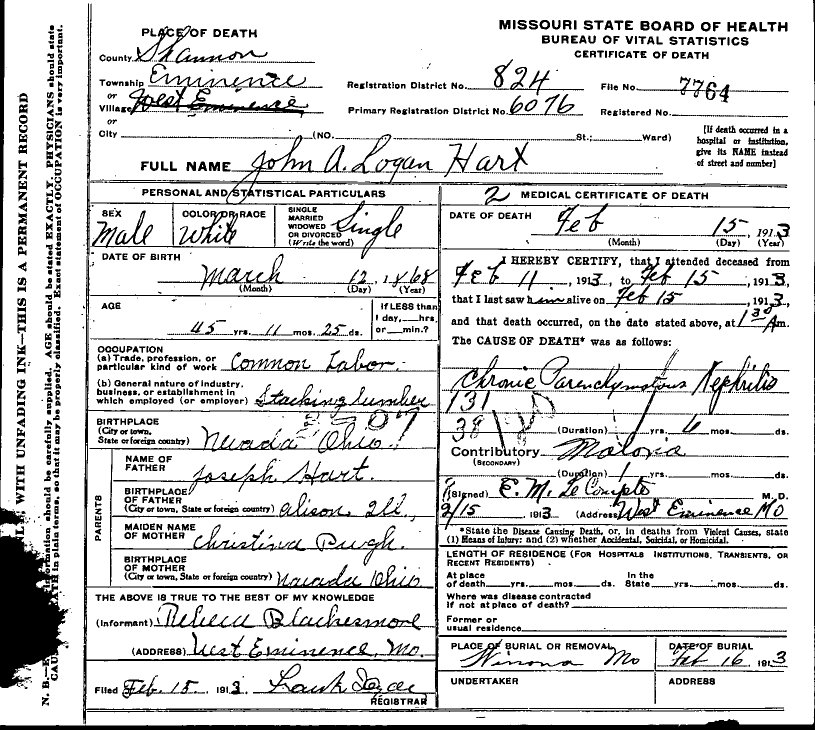 MISSOURI STATE BOARD OF HEALTH
BUREAU OF VITAL STATISTICS
CERTIFICATE OF DEATH
PLACE OF DEATH
County Shannon
Township Eminence
or
Village West Eminence
or
City (NO. St.; Ward)
Registration District No. 824
File No. 7764
Primary Registration District No. 6076
Registered No.
[If death occurred in a
hospital or institution,
give its NAME instead
of street and number]
FULL NAME John A. Logan Hart
PERSONAL AND STATISTICAL PARTICULARS
SEX
Male
COLOR OR RACE
White
SINGLE
MARRIED
WIDOWED
OR DIVORCED
(Write the word)
Single
DATE OF BIRTH
March 12, 1868
(Month) (Day) (Year)
AGE
45 yrs. 11 mos. 25 ds.
If LESS than
1 day, hrs.
or min.?
OCCUPATION
(a) Trade, profession, or
particular kind of work Common Labor.
(b) General nature of industry,
business, or establishment in
which employed (or employer) Stacking lumber
BIRTHPLACE
(City or town,
State or foreign country) Nevada Ohio
PARENTS
NAME OF
FATHER
Joseph Hart.
BIRTHPLACE
OF FATHER
(City or town, State or foreign country) Ill.
MAIDEN NAME
OF MOTHER
Christina Pugh.
BIRTHPLACE
OF MOTHER
(City or town, State or foreign country) Navada Ohio
THE ABOVE IS TRUE TO THE BEST OF MY KNOWLEDGE
(Informant) Rebeca Blackesmore
(ADDRESS) West Eminence, Mo.
Filed Feb. 15. 1913 Frank
REGISTRAR
2 MEDICAL CERTIFICATE OF DEATH
DATE OF DEATH
Feb 15, 1913
(Month) (Day) (Year)
I HEREBY CERTIFY, that I attended deceased from
Feb 11, 1913, to Feb 15, 1913,
that I last saw him alive on Feb 15, 1913,
and that death occurred, on the date stated above, at 1 30 Am.
The CAUSE OF DEATH* was as follows:
Chronic Parenchymatous Nephritis
131
38 120
(Duration) 1 yrs. 6 mos. ds.
Contributory Maloria
(SECONDARY)
(Duration) 1 yrs. mos. ds.
(Signed) E. M. Le Compte M. D.
2/15 1913 (Address) West Eminence MO
*State the Disease Causing Death, or, in deaths from Violent Causes, state
(1) Means of Injury: and (2) whether Accidental, Suicidal, or Homicidal.
LENGTH OF RESIDENCE (FOR HOSPITALS INSTITUTIONS, TRANSIENTS, OR
RECENT RESIDENTS)
At place
of death yrs. mos. ds.
In the
State yrs. mos. ds.
Where was disease contracted
if not at place of death?
Former or
usual residence
PLACE OF BURIAL OR REMOVAL
Winona Mo
DATE OF BURIAL
Feb 16 1913
UNDERTAKER
ADDRESS
WITH UNFADING INK—THIS IS A PERMANENT RECORD
N. B.— information should be carefully supplied. AGE should be stated EXACTLY. PHYSICIANS should state
DEATH in plain terms, so that it may be properly classified. Exact statement of OCCUPATION is very important.